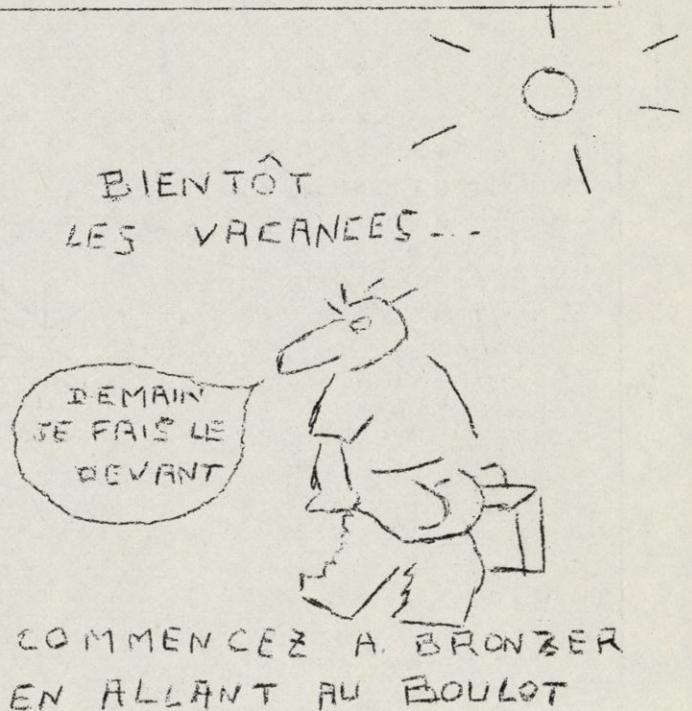 BIENTÔT
LES VACANCES...
DEMAIN
JE FAIS LE
DEVANT
COMMENCEZ A. BRONZER
EN ALLANT AU BOULOT